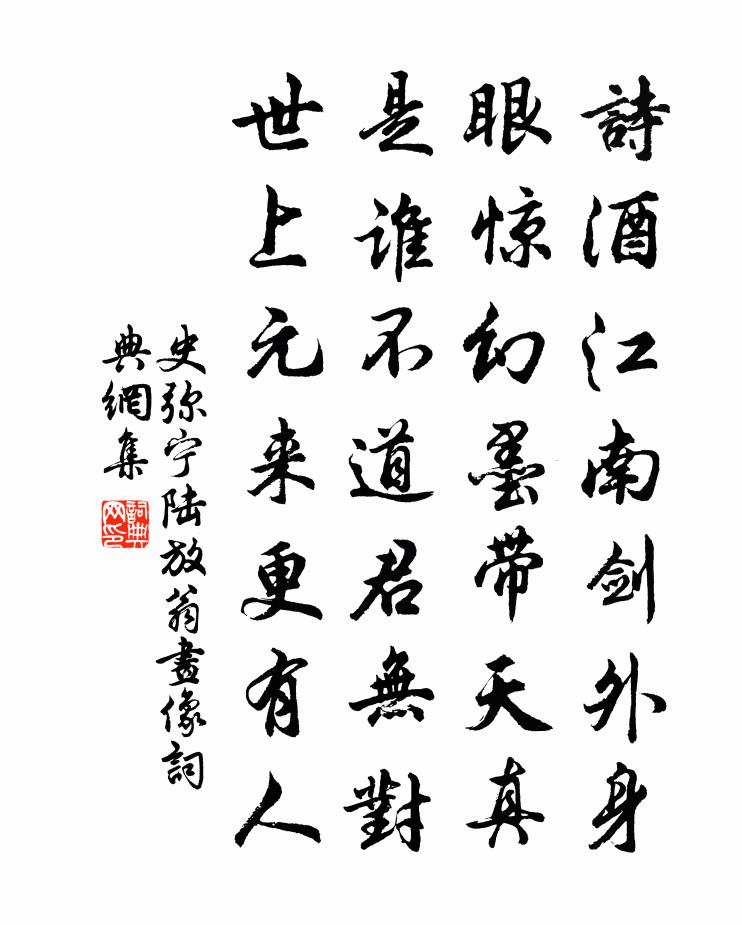 詩酒江南剑外身
眼惊幻墨带天真
是谁不道君無對
世上元来更有人
史弥宁陆放翁畫像詞
典網集
詞典
网印